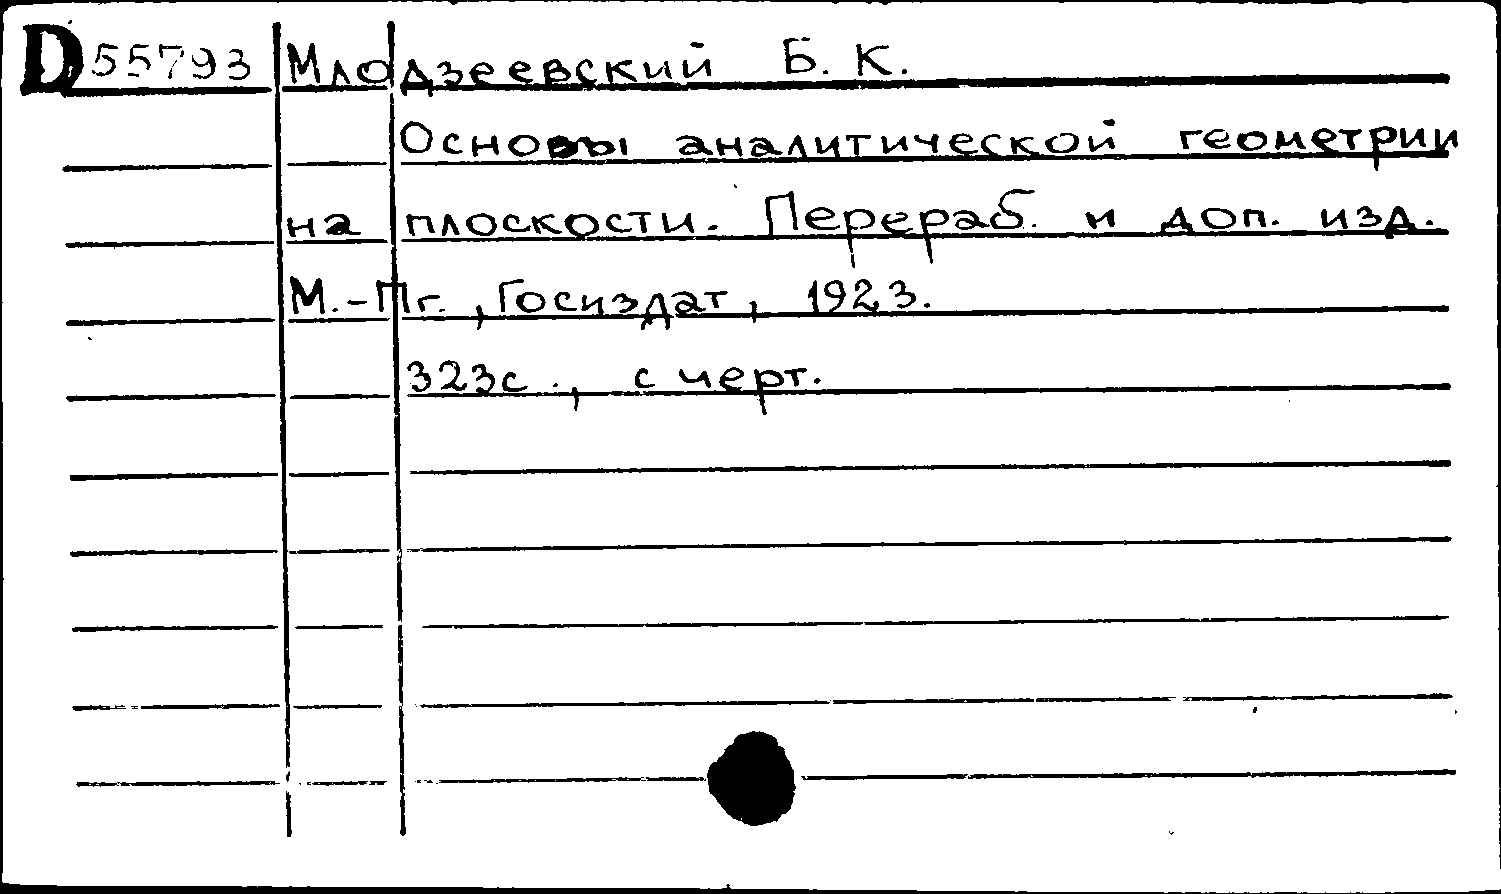 D 55793 Млодзеевский Б. К.
Основы аналитической геометрии
на плоскости. Перераб. и доп. изд.
М.-Пг., Госиздат, 1923.
323с., с черт.